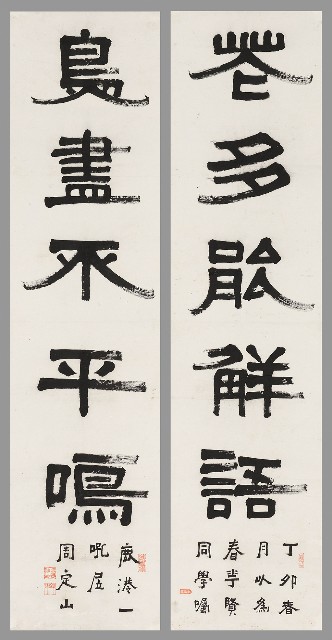 花多能觧語
丁卯春
月以為
春賢
同學囑
鳥盡不平鳴
鹿港一
吼居
周定山